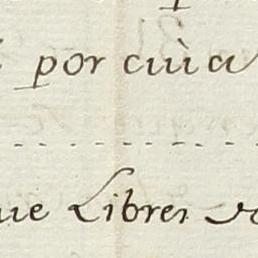 por cuia
ue Libres